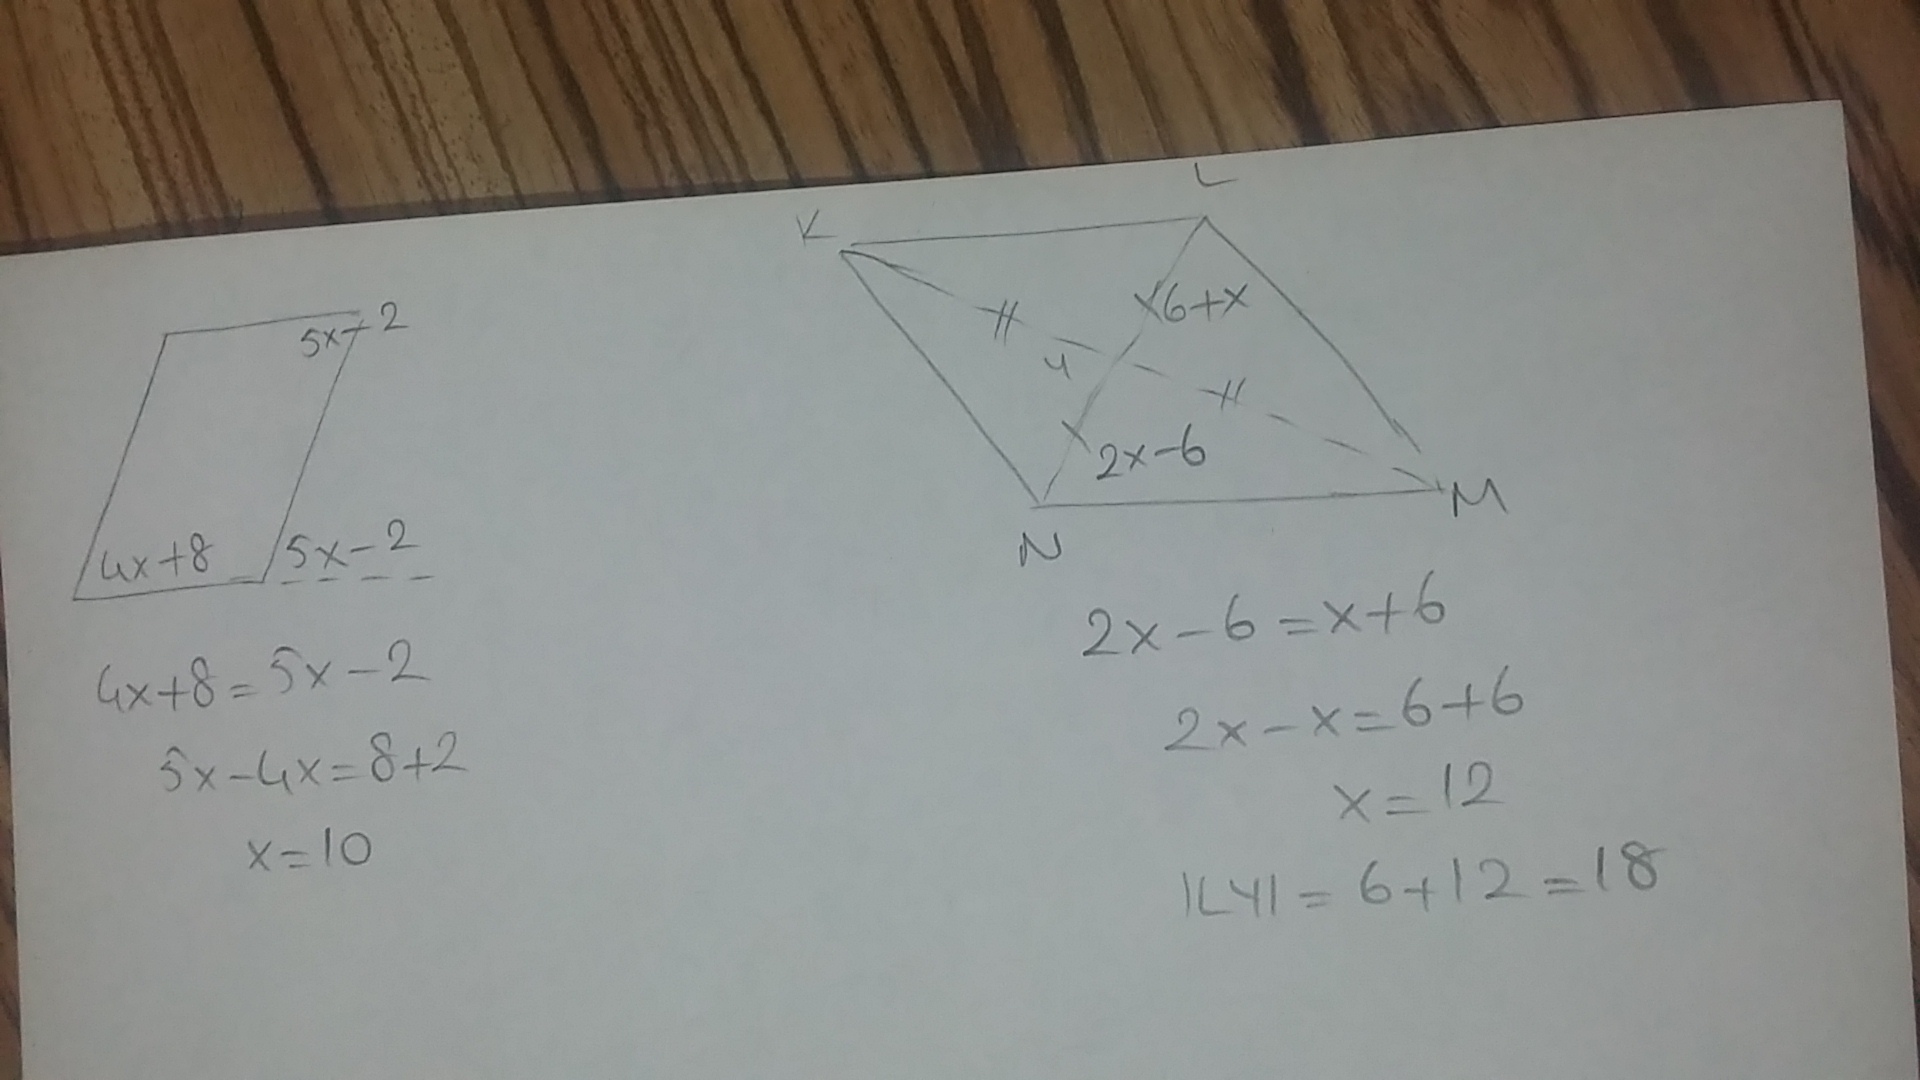 5x-2
4x+8
5x-2
4x+8=5x-2
5x-4x=8+2
x=10
K
L
6+x
y
2x-6
N
M
2x-6=x+6
2x-x=6+6
x=12
|LY|=6+12=18